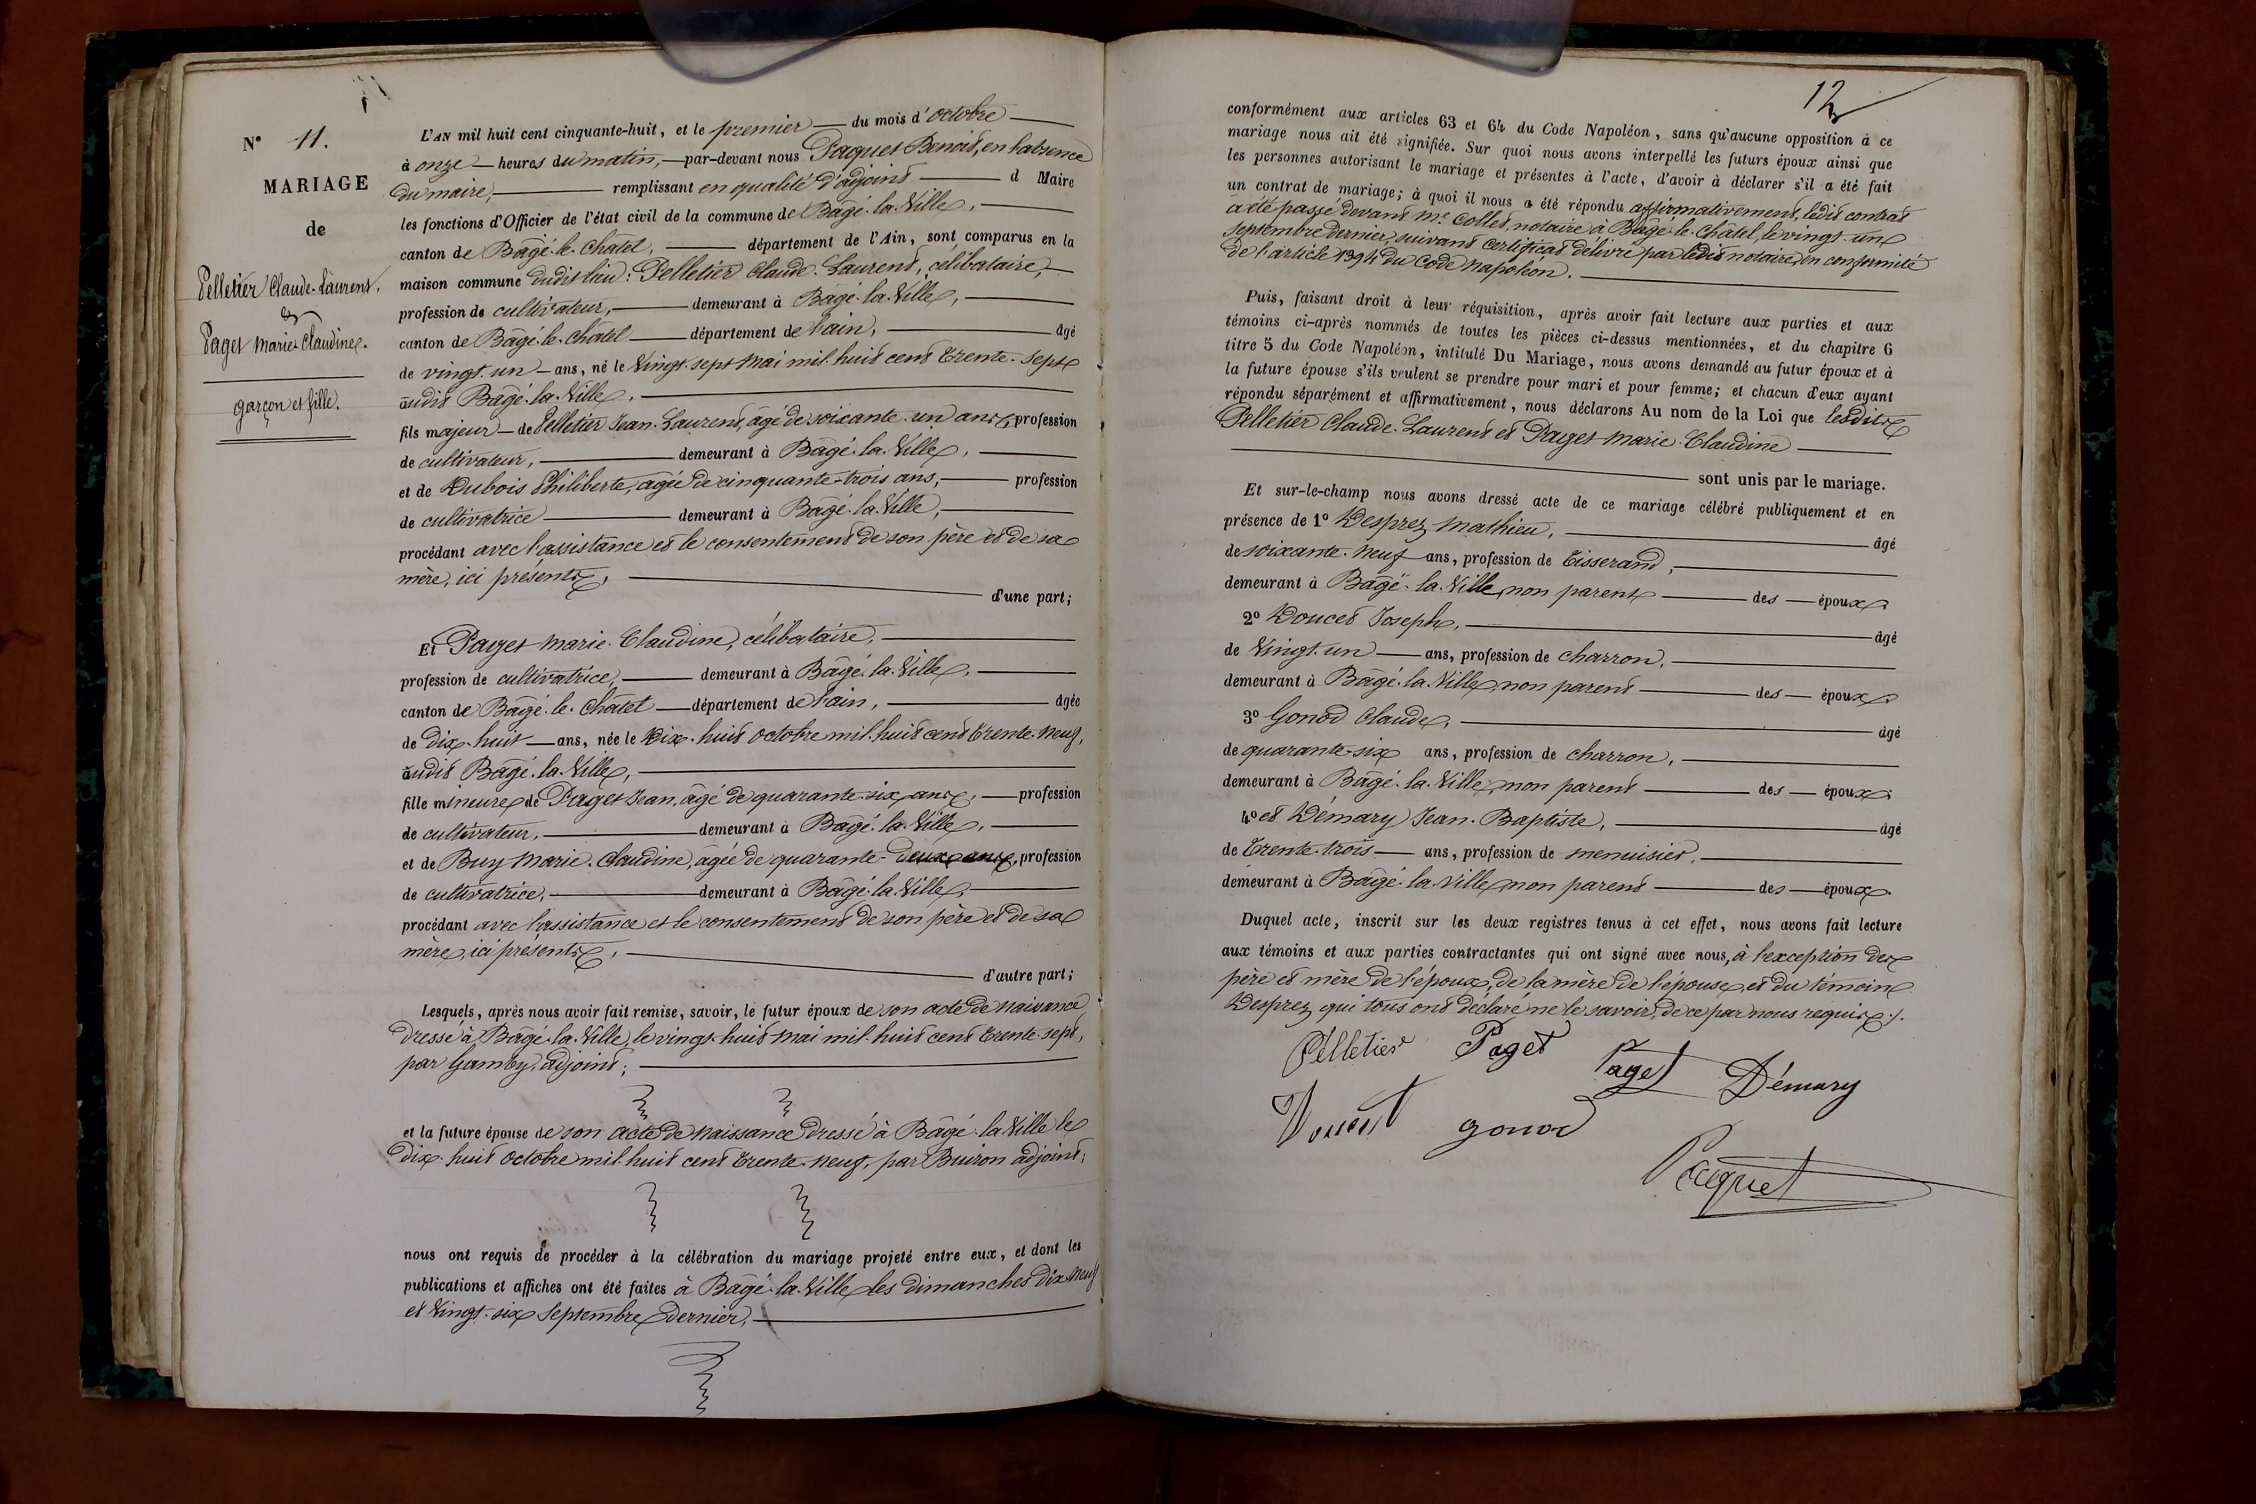 N° 11.
MARIAGE
de
Pelletier Claude-Laurent,
et
Paget Marie Claudine.
garçon et fille.
L'AN mil huit cent cinquante-huit, et le premier du mois d'octobre
à onze heures du matin, par-devant nous Paquet Benoit, en l'absence
du maire, remplissant en qualité d'adjoint d Maire
les fonctions d'Officier de l'état civil de la commune de Bâgé-la-Ville,
canton de Bâgé-le-Châtel, département de l'Ain, sont comparus en la
maison commune dudit lieu: Pelletier Claude-Laurent, célibataire,
profession de cultivateur, demeurant à Bâgé-la-Ville,
canton de Bâgé-le-Châtel département de l'ain, âgé
de vingt-un ans, né le vingt-sept mai mil-huit cent trente-sept
audit Bâgé-la-Ville,
fils majeur de Pelletier Jean-Laurent, âgé de soixante-un ans, profession
de cultivateur, demeurant à Bâgé-la-Ville,
et de Dubois Philiberte, âgée de cinquante-trois ans, profession
de cultivatrice demeurant à Bâgé-la-Ville,
procédant avec l'assistance et le consentement de son père et de sa
mère, ici présents, d'une part;
ET Paget Marie-Claudine, célibataire,
profession de cultivatrice, demeurant à Bâgé-la-Ville,
canton de Bâgé-le-Châtel département de l'ain, âgée
de dix-huit ans, née le dix-huit octobre mil-huit cent trente-neuf,
audit Bâgé-la-Ville,
fille mineure de Paget Jean, âgé de quarante-six ans, profession
de cultivateur, demeurant à Bâgé-la-Ville,
et de Buy Marie-Claudine, âgée de quarante-deux ans, profession
de cultivatrice, demeurant à Bâgé-la-Ville,
procédant avec l'assistance et le consentement de son père et de sa
mère, ici présents, d'autre part;
Lesquels, après nous avoir fait remise, savoir, le futur époux de son acte de naissance
dressé à Bâgé-la-Ville, le vingt-huit mai mil-huit cent trente-sept,
par Gamby, adjoint;
et la future épouse de son acte de naissance dressé à Bâgé-la-Ville le
dix-huit octobre mil-huit cent trente-neuf, par Buiron adjoint;
nous ont requis de procéder à la célébration du mariage projeté entre eux, et dont les
publications et affiches ont été faites à Bâgé-la-Ville les dimanches dix-neuf
et vingt-six septembre dernier,
12
conformément aux articles 63 et 64 du Code Napoléon, sans qu'aucune opposition à ce
mariage nous ait été signifiée. Sur quoi nous avons interpellé les futurs époux ainsi que
les personnes autorisant le mariage et présentes à l'acte, d'avoir à déclarer s'il a été fait
un contrat de mariage; à quoi il nous a été répondu affirmativement, ledit contrat
a été passé devant Me Collet, notaire à Bâgé-le-Châtel, le vingt-un
septembre dernier, suivant certificat délivré par ledit notaire, en conformité
de l'article 1394 du Code Napoléon.
Puis, faisant droit à leur réquisition, après avoir fait lecture aux parties et aux
témoins ci-après nommés de toutes les pièces ci-dessus mentionnées, et du chapitre 6
titre 5 du Code Napoléon, intitulé Du Mariage, nous avons demandé au futur époux et à
la future épouse s'ils veulent se prendre pour mari et pour femme; et chacun d'eux ayant
répondu séparément et affirmativement, nous déclarons Au nom de la Loi que lesdits
Pelletier Claude-Laurent et Paget Marie-Claudine
sont unis par le mariage.
Et sur-le-champ nous avons dressé acte de ce mariage célébré publiquement et en
présence de 1° Desprez Mathieu, âgé
de soixante-neuf ans, profession de tisserand,
demeurant à Bâgé-la-Ville, non parent des époux,
2° Doucet Joseph, âgé
de vingt-un ans, profession de charron,
demeurant à Bâgé-la-Ville, non parent des époux,
3° Gonod Claude, âgé
de quarante-six ans, profession de charron,
demeurant à Bâgé-la-Ville, non parent des époux;
4° et Démary Jean-Baptiste, âgé
de trente-trois ans, profession de menuisier,
demeurant à Bâgé-la-Ville, non parent des époux.
Duquel acte, inscrit sur les deux registres tenus à cet effet, nous avons fait lecture
aux témoins et aux parties contractantes qui ont signé avec nous, à l'exception des
père et mère de l'époux, de la mère de l'épouse et du témoin
Desprez, qui tous ont déclaré ne le savoir, de ce par nous requis./.
Pelletier Paget Paget Démary
Doucet gonod
Paquet